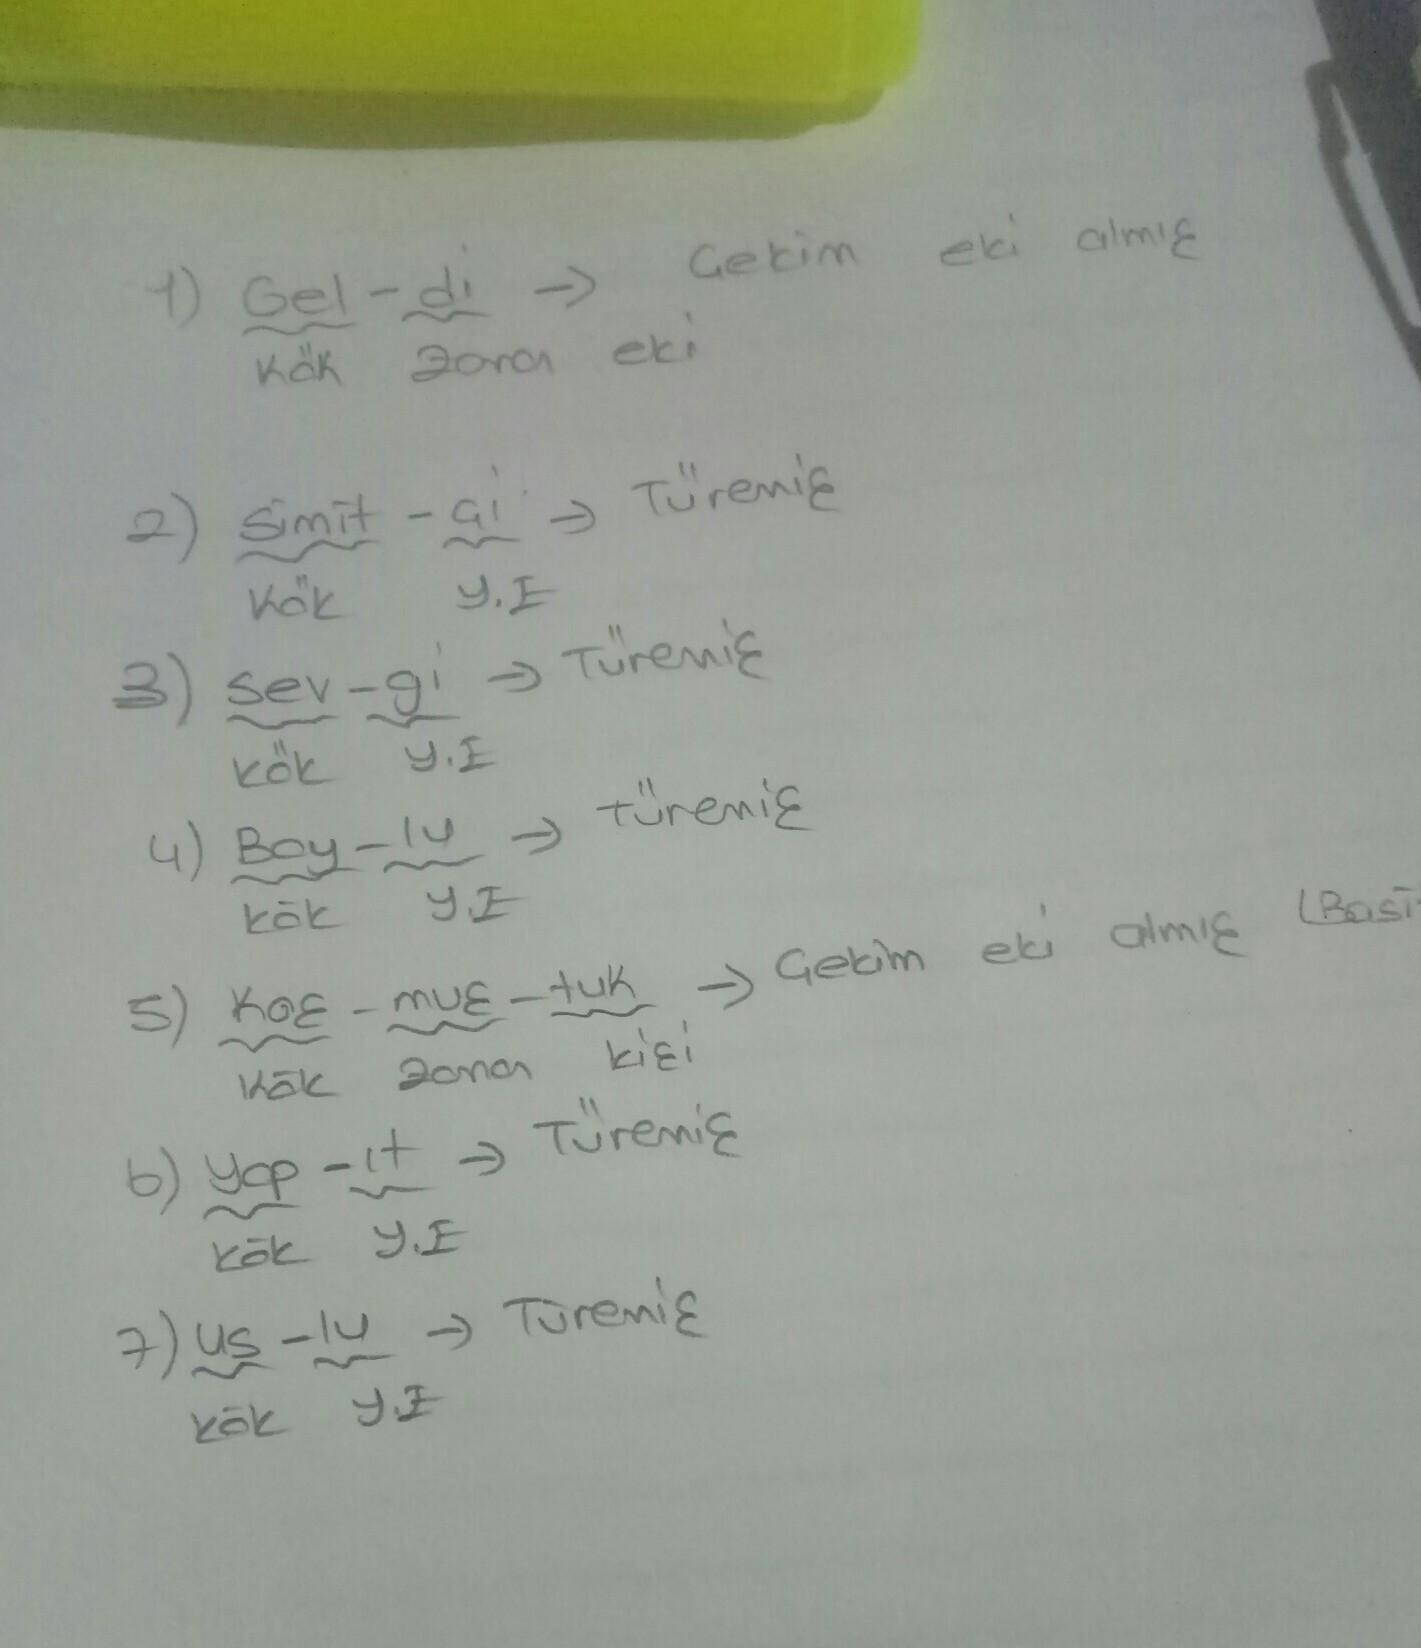 1) Gel - di → Çekim eki almış
Kök Zaman eki
2) Simit - çi → Türemiş
Kök Y.E
3) Sev - gi → Türemiş
Kök Y.E
4) Boy - lu → Türemiş
Kök Y.E
5) Koş - muş - tuk → Çekim eki almış (Basi
Kök Zaman kişi
6) Yap - ıt → Türemiş
Kök Y.E
7) us - lu → Türemiş
Kök Y.E